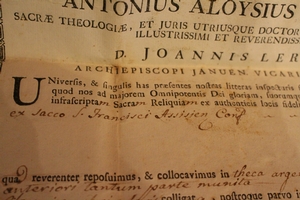 ANTONIUS ALOYSIUS
SACRÆ THEOLOGIÆ, ET JURIS UTRIUSQUE DOCTOR
ILLUSTRISSIMI ET REVERENDISS
D. JOANNIS LER
ARCHIEPISCOPI JANUEN. VICARI
Universis, & singulis has præsentes nostras litteras inspecturis f
quod nos ad majorem Omnipotentis Dei gloriam, suorumque
infrascriptam Sacram Reliquiam ex authenticis locis fidel
ex sacco S. Francisci Assisien Conf
quã reverenter reposuimus, & collocavimus in theca arge
anteriori tantum parte munita
colligata, nostroque parvo